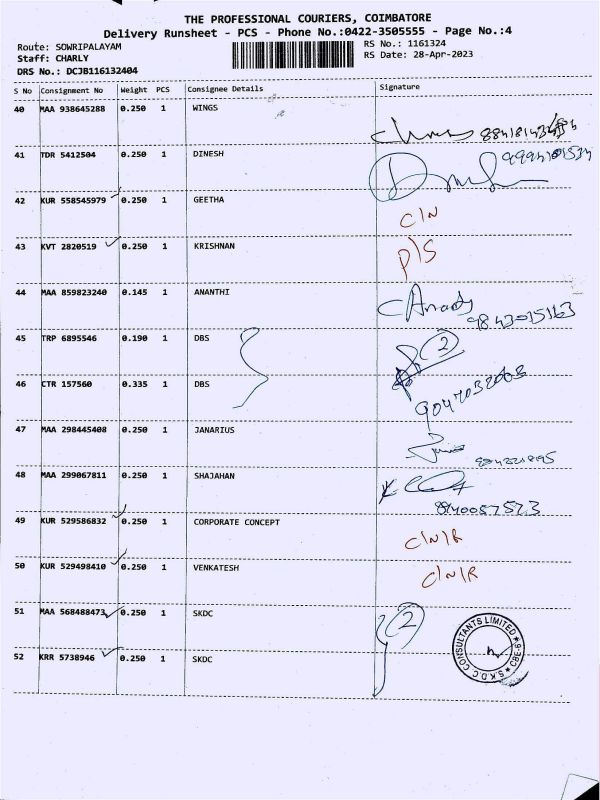 THE PROFESSIONAL COURIERS, COIMBATORE
Delivery Runsheet - PCS - Phone No.:0422-3505555 - Page No.:4
Route: SOWRIPALAYAM RS No.: 1161324
Staff: CHARLY RS Date: 28-Apr-2023
DRS No.: DCJB116132404
S No Consignment No Weight PCS Consignee Details Signature
40 MAA 938645288 0.250 1 WINGS
41 TDR 5412504 0.250 1 DINESH
42 KUR 558545979 0.250 1 GEETHA C/N
43 KVT 2820519 0.250 1 KRISHNAN P/S
44 MAA 859823240 0.145 1 ANANTHI
9843015163
45 TRP 6895546 0.190 1 DBS 2
46 CTR 157560 0.335 1 DBS
9047032063
47 MAA 298445408 0.250 1 JANARIUS
48 MAA 299067811 0.250 1 SHAJAHAN
49 KUR 529586832 0.250 1 CORPORATE CONCEPT C/N/R
50 KUR 529498410 0.250 1 VENKATESH C/N/R
51 MAA 568488473 0.250 1 SKDC 2
S.K.D.C CONSULTANTS LIMITED ★ CBE-6 ★
52 KRR 5738946 0.250 1 SKDC